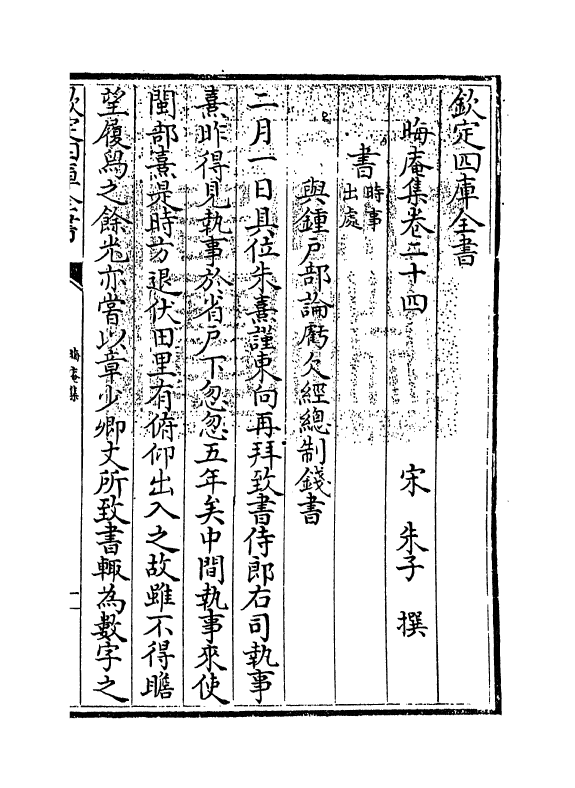 欽定四庫全書
晦庵集卷二十四
宋 朱子 撰
書
時事
出處
與鍾户部論虧欠經總制錢書
二月一日具位朱熹謹東向再拜致書侍郎右司執事
熹昨得見執事於省户下忽忽五年矣中間執事來使
閩部熹是時方退伏田里有俯仰出入之故雖不得瞻
望履舄之餘光亦嘗以章少卿丈所致書輙為數字之
欽定四庫全書
晦庵集
一